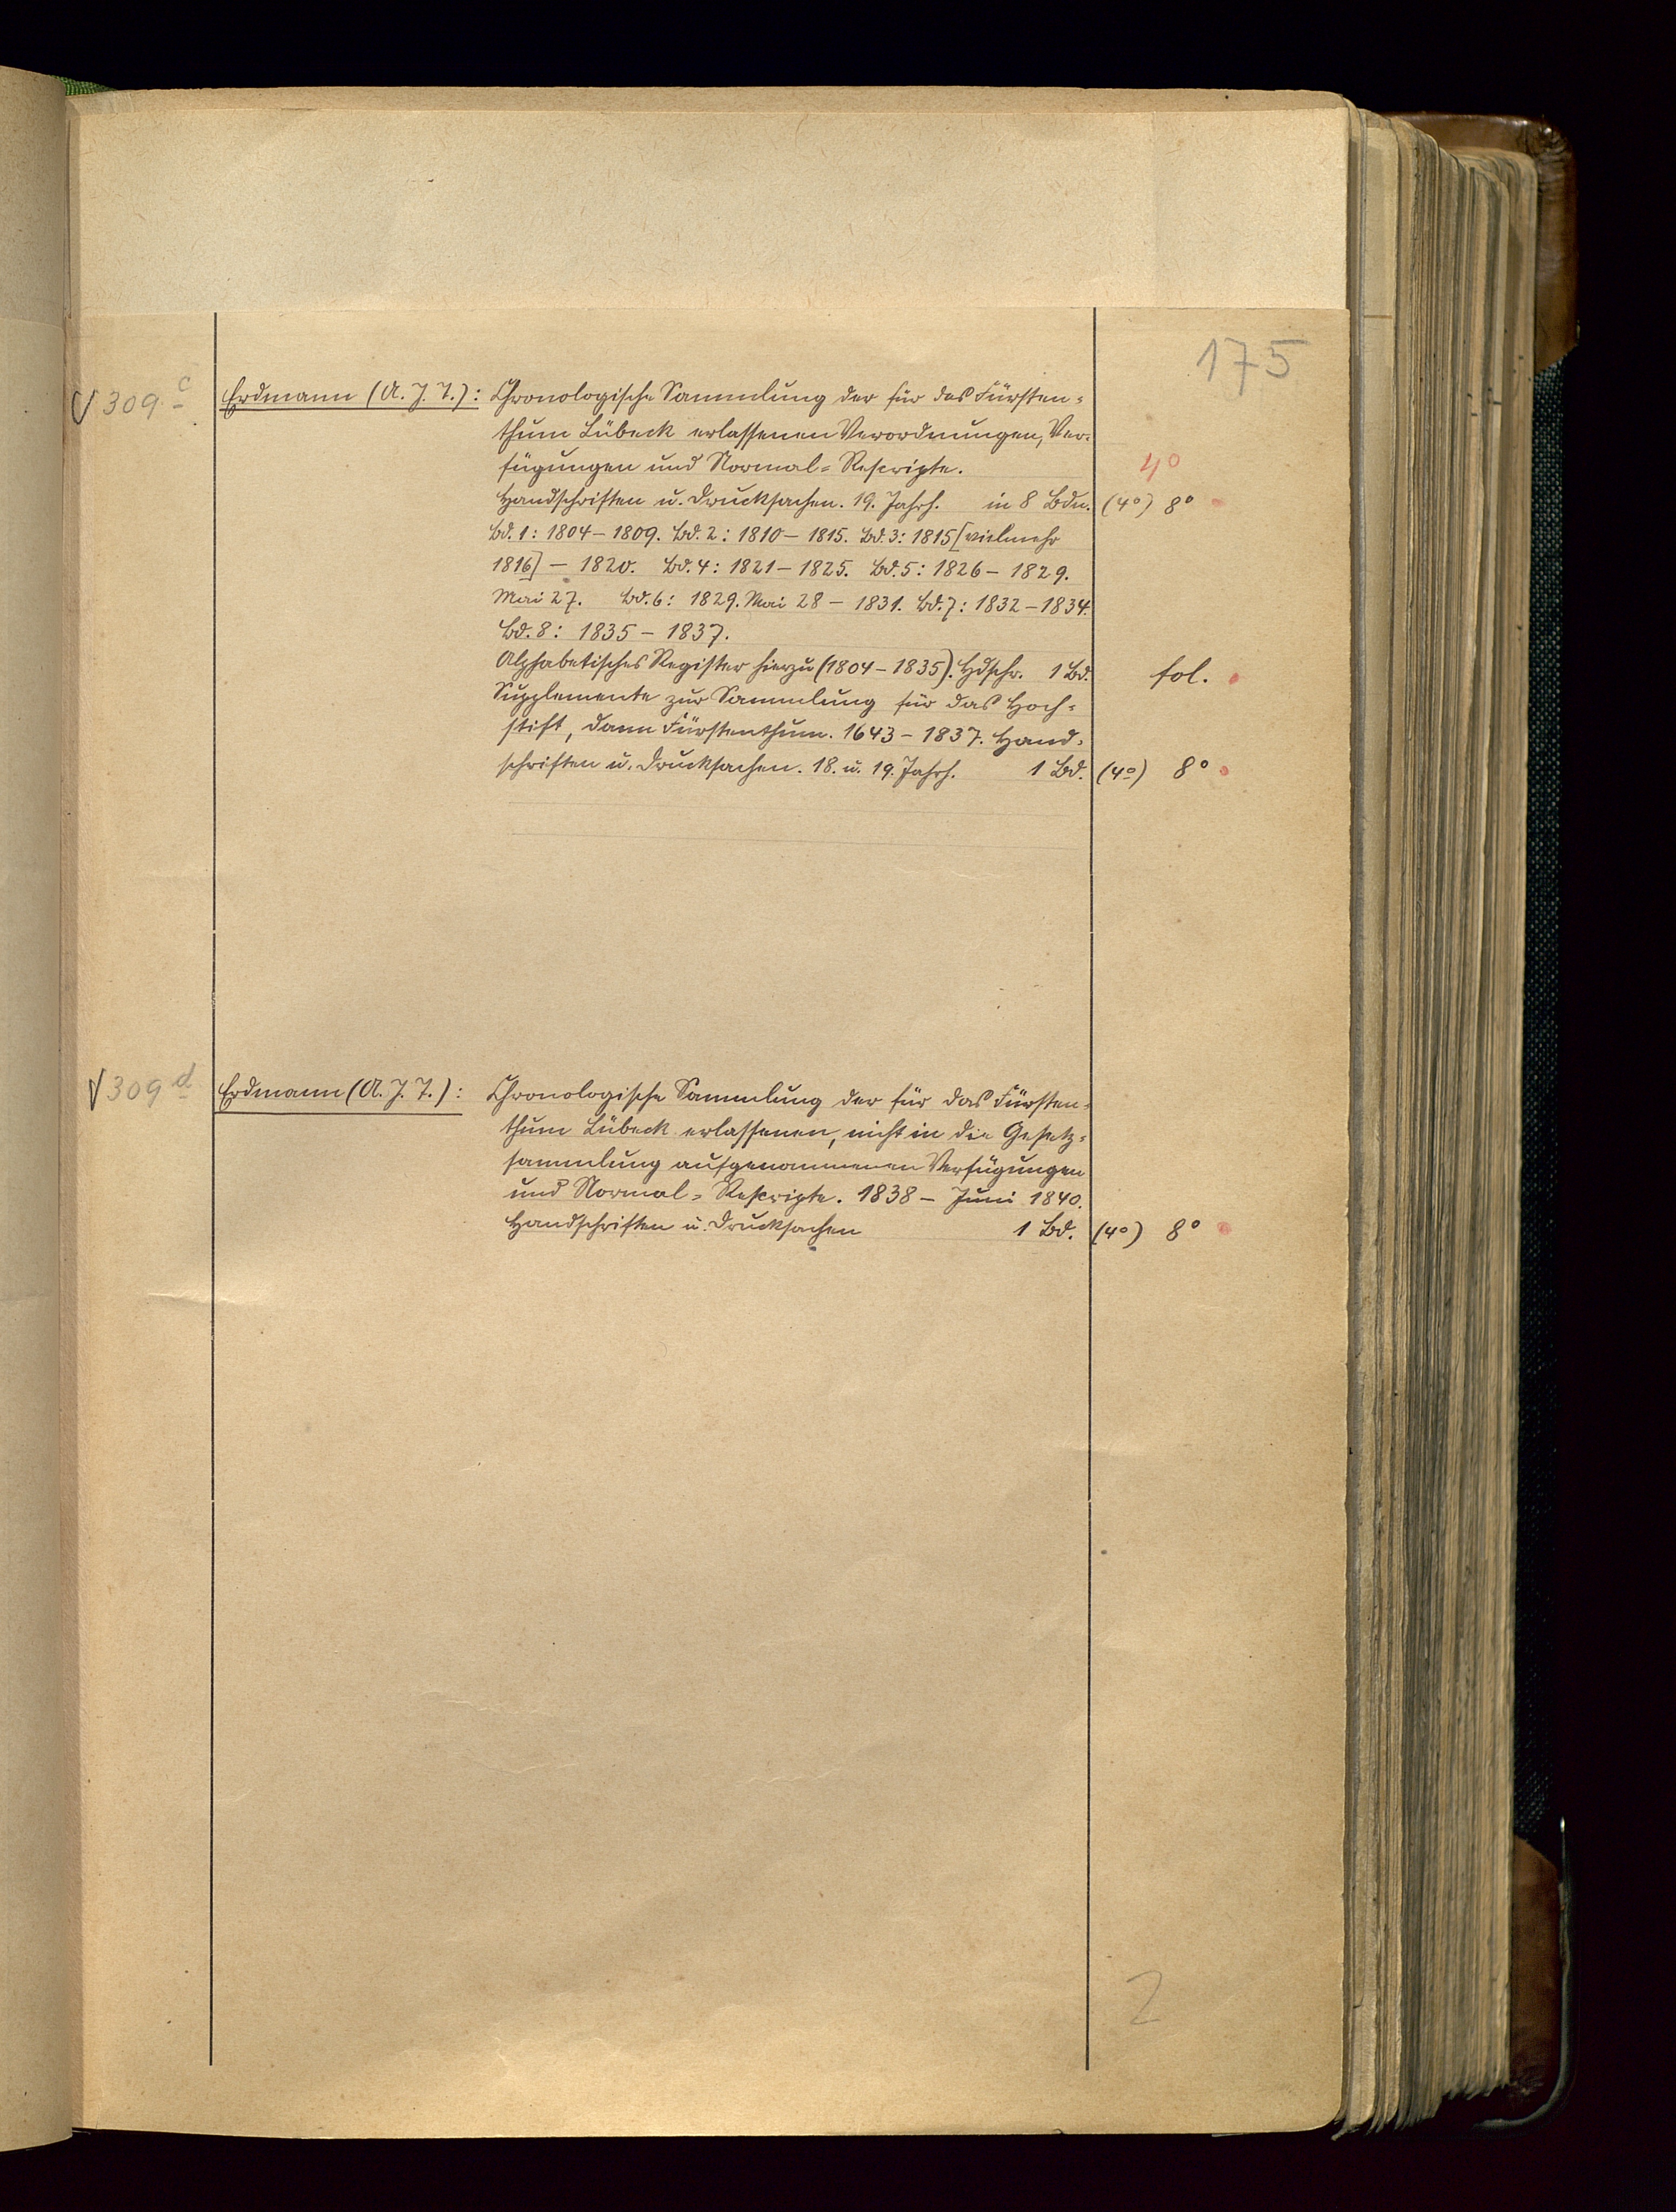 175
√ 309 c Erdmann (A. J. T.): Chronologische Sammlung der für das Fürsten=
thum Lübeck erlassenen Verordnungen, Ver=
fügungen und Normal=Rescripte. 4°
Handschriften u. Drucksachen. 19. Jahrh. in 8 Bdn. (4°) 8°
Bd. 1: 1804–1809. Bd. 2: 1810–1815. Bd. 3: 1815 [vielmehr
1816] – 1820. Bd. 4: 1821–1825. Bd. 5: 1826–1829.
Mai 27. Bd. 6: 1829. Mai 28 – 1831. Bd. 7: 1832–1834.
Bd. 8: 1835–1837.
Alphabetisches Register hierzu (1804–1835). Hdschr. 1 Bd. fol.
Supplemente zur Sammlung für das Hoch=
stift, dann Fürstenthum. 1643–1837. Hand=
schriften u. Drucksachen. 18. u. 19. Jahrh. 1 Bd. (4°) 8°
√ 309 d Erdmann (A. J. T.): Chronologische Sammlung der für das Fürsten=
thum Lübeck erlassenen, nicht in die Gesetz=
sammlung aufgenommenen Verfügungen
und Normal=Rescripte. 1838 – Juni 1840.
Handschriften u. Drucksachen 1 Bd. (4°) 8°
2